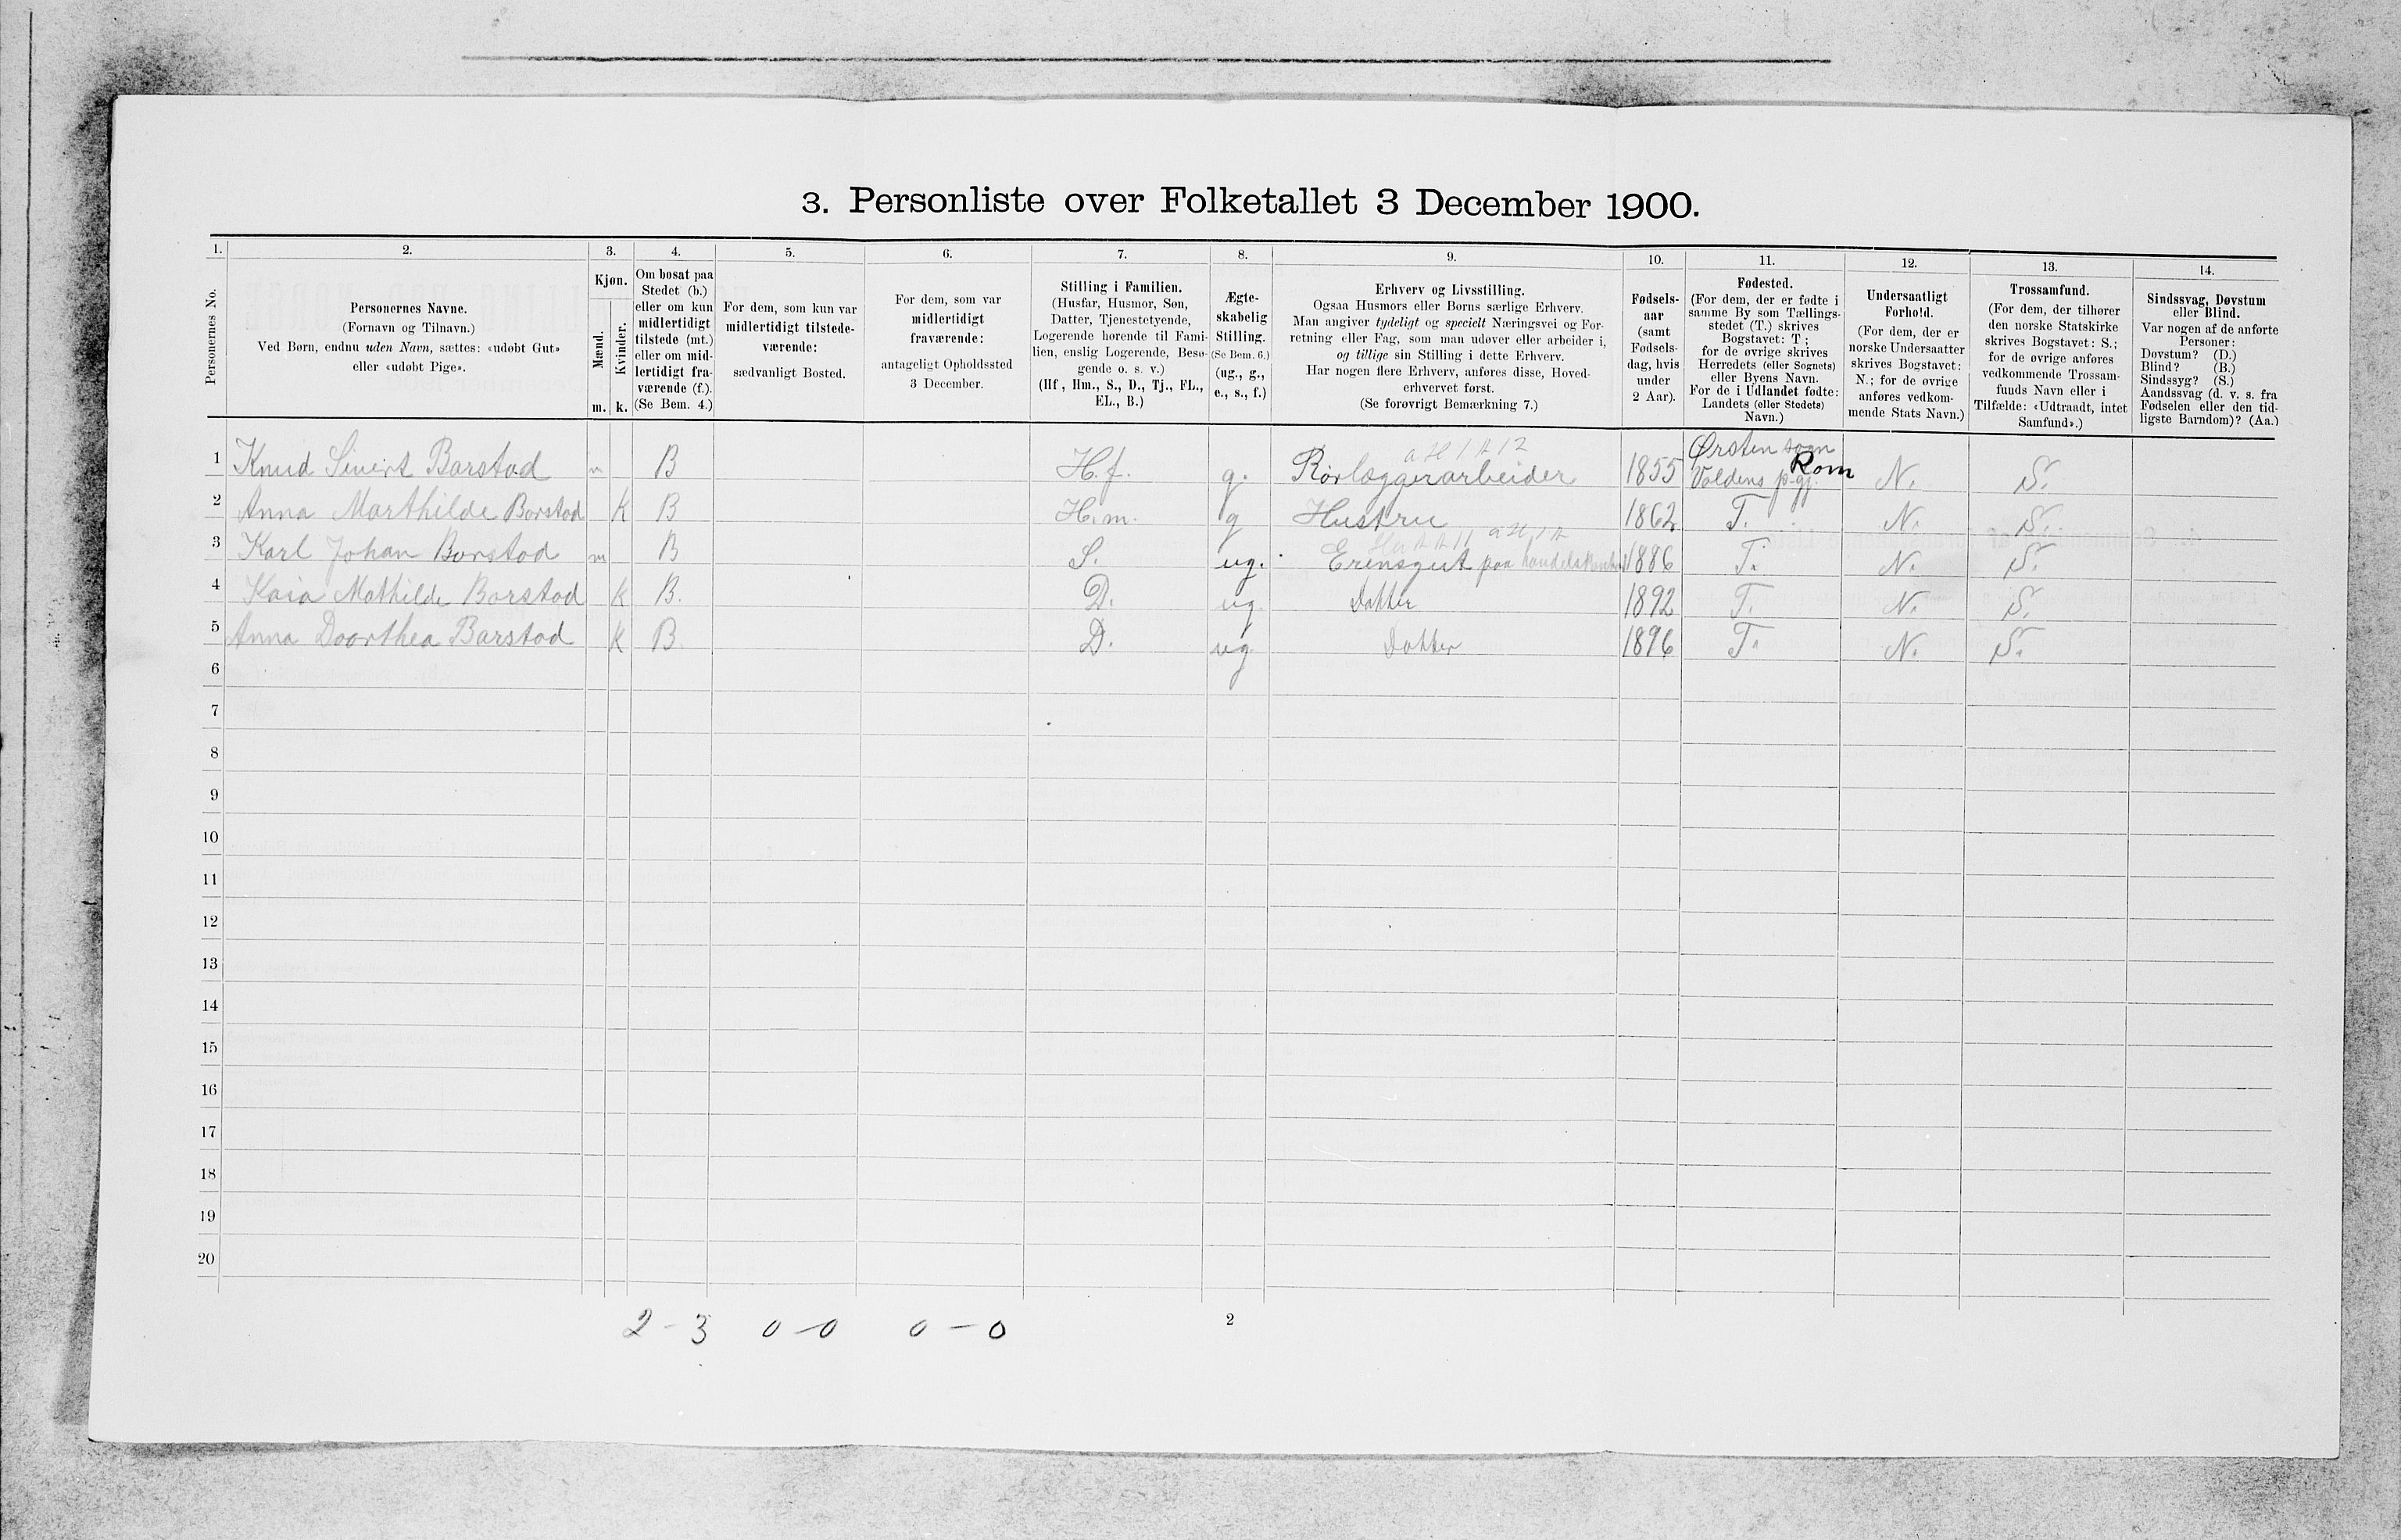 3. Personliste over Folketallet 3 December 1900.
1. 2. 3. 4. 5. 6. 7. 8. 9. 10. 11. 12. 13. 14.
Personernes No.
Personernes Navne.
(Fornavn og Tilnavn.)
Ved Børn, endnu uden Navn, sættes: «udøbt Gut»
eller «udøbt Pige».
Kjøn.
Mænd.
Kvinder.
m. k.
Om bosat paa
Stedet (b.)
eller om kun
midlertidigt
tilstede (mt.)
eller om mid-
lertidigt fra-
værende (f.).
(Se Bem. 4.)
For dem, som kun var
midlertidigt tilstede-
værende:
sædvanligt Bosted.
For dem, som var
midlertidigt
fraværende:
antageligt Opholdssted
3 December.
Stilling i Familien.
(Husfar, Husmor, Søn,
Datter, Tjenestetyende,
Logerende hørende til Fami-
lien, enslig Logerende, Besø-
gende o. s. v.)
(Hf, Hm., S., D., Tj., FL.,
EL., B.)
Ægte-
skabelig
Stilling.
(Se Bem. 6.)
(ug., g.,
e., s., f.)
Erhverv og Livsstilling.
Ogsaa Husmors eller Børns særlige Erhverv.
Man angiver tydeligt og specielt Næringsvei og For-
retning eller Fag, som man udøver eller arbeider i,
og tillige sin Stilling i dette Erhverv.
Har nogen flere Erhverv, anføres disse, Hoved-
erhvervet først.
(Se forøvrigt Bemærkning 7.)
Fødsels-
aar
(samt
Fødsels-
dag, hvis
under
2 Aar).
Fødested.
(For dem, der er fødte i
samme By som Tællings-
stedet (T.) skrives
Bogstavet: T;
for de øvrige skrives
Herredets (eller Sognets)
eller Byens Navn.
For de i Udlandet fødte:
Landets (eller Stedets)
Navn.)
Undersaatligt
Forhold.
(For dem, der er
norske Undersaatter
skrives Bogstavet:
N.; for de øvrige
anføres vedkom-
mende Stats Navn.)
Trossamfund.
(For dem, der tilhører
den norske Statskirke
skrives Bogstavet: S.;
for de øvrige anføres
vedkommende Trossam-
funds Navn eller i
Tilfælde: «Udtraadt, intet
Samfund».)
Sindssvag, Døvstum
eller Blind.
Var nogen af de anførte
Personer:
Døvstum? (D.)
Blind? (B.)
Sindssyg? (S.)
Aandssvag (d. v. s. fra
Fødselen eller den tid-
ligste Barndom)? (Aa.)
Ørsten sogn
1 Knud Sivert Barstad m B H.f. g. Rørlæggerarbeider 1855 Voldens p.gj. Rom N. S.
2 Anna Marthilde Borstad K B H.m. g Hustru 1862 T. N. S.
3 Karl Johan Borstad m B S. ug. Erensgut paa 1886 T. N. S.
4 Kaia Mathilde Borstad K B. D. ug. Datter 1892 T. N. S.
5 Anna Doorthea Barstad K B. D. ug. Datter 1896 T. N. S.
6
7
8
9
10
11
12
13
14
15
16
17
18
19
20
2 - 3 0 - 0 0 - 0
2